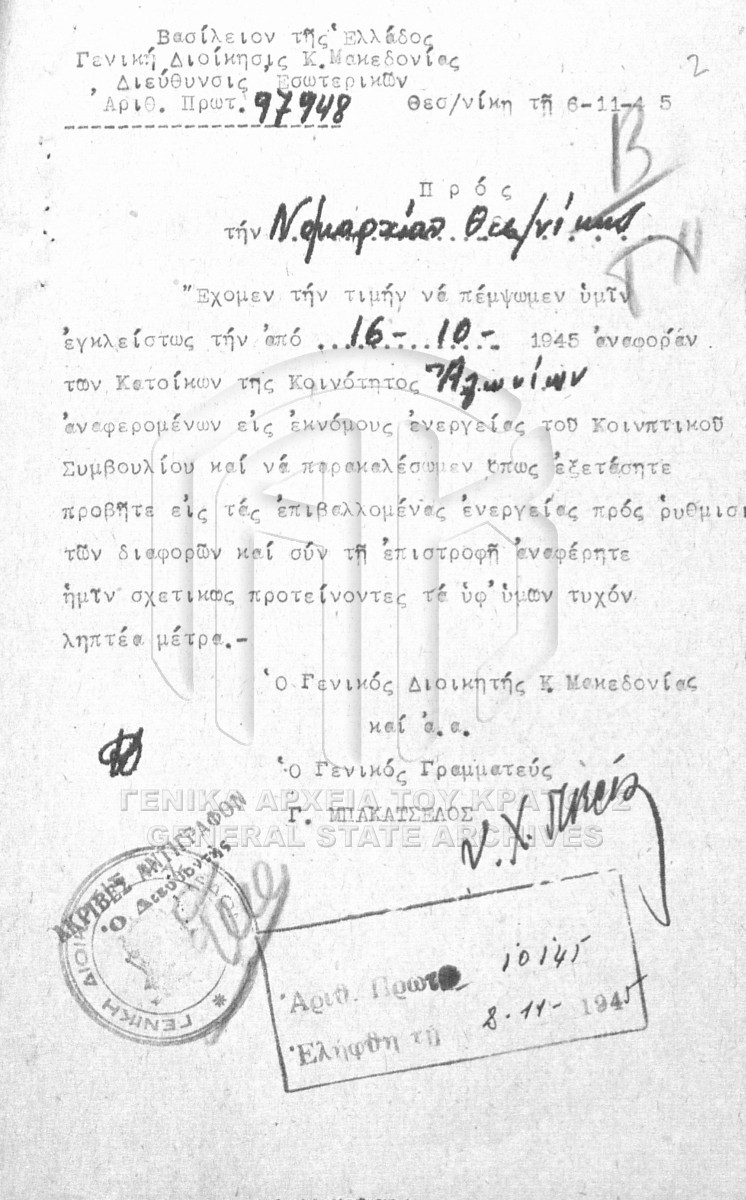 Βασίλειον τῆς Ἑλλάδος
Γενική Διοίκησις Κ.Μακεδονίας
Διεύθυνσις Ἐσωτερικῶν
Ἀριθ. Πρωτ. 97948
Θεσ/νίκη τῇ 6-11-4 5
2
Β
Πρός
τήν Νομαρχίαν Θεσ/νίκης
Ἔχομεν τήν τιμήν νά πέμψωμεν ὑμῖν
ἐγκλείστως τήν ἀπό 16- 10- 1945 ἀναφοράν
των Κατοίκων της Κοινότητος
ἀναφερομένων εἰς ἐκνόμους ἐνεργείας τοῦ Κοινπτικοῦ
Συμβουλίου καί νά παρακαλέσωμεν ὅπως ἐξετάσητε
προβῆτε εἰς τάς ἐπιβαλλομένας ἐνεργείας πρός ρύθμισι
τῶν διαφορῶν καί σύν τῇ ἐπιστροφῇ ἀναφέρητε
ἡμῖν σχετικως προτείνοντες τά ὑφ'ὑμων τυχόν
ληπτέα μέτρα.-
Ὁ Γενικός Διοικητής Κ.Μακεδονίας
καί ἀ.α.
Ὁ Γενικός Γραμματεύς
ΓΕΝΙΚΑ ΑΡΧΕΙΑ ΤΟΥ ΚΡΑΤΟΥΣ
Γ. ΜΠΑΚΑΤΣΕΛΟΣ
GENERAL STATE ARCHIVES
ΑΚΡΙΒΕΣ ΑΝΤΙΓΡΑΦΟΝ
Ὁ Διευθυντής
ΓΕΝΙΚΗ ΔΙΟΙΚ
Ἀριθ. Πρωτ. 10145
Ἐλήφθη τῇ 8-11- 1945